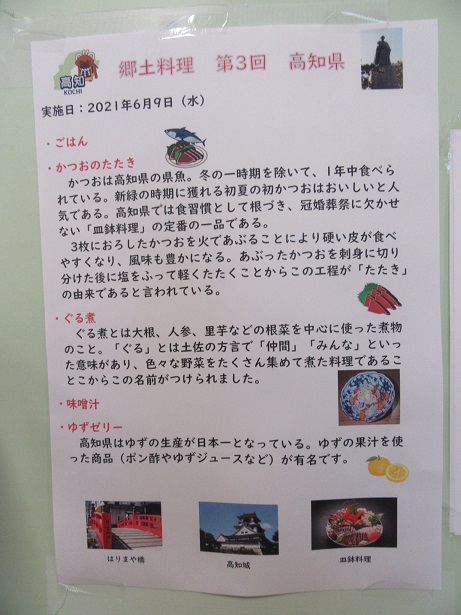 高知
KOCHI
郷土料理　第3回　高知県
実施日：2021年6月9日（水）
・ごはん
・かつおのたたき
かつおは高知県の県魚。冬の一時期を除いて、1年中食べら
れている。新緑の時期に獲れる初夏の初かつおはおいしいと人
気である。高知県では食習慣として根づき、冠婚葬祭に欠かせ
ない「皿鉢料理」の定番の一品である。
3枚におろしたかつおを火であぶることにより硬い皮が食べ
やすくなり、風味も豊かになる。あぶったかつおを刺身に切り
分けた後に塩をふって軽くたたくことからこの工程が「たたき」
の由来であると言われている。
・ぐる煮
ぐる煮とは大根、人参、里芋などの根菜を中心に使った煮物
のこと。「ぐる」とは土佐の方言で「仲間」「みんな」といっ
た意味があり、色々な野菜をたくさん集めて煮た料理であるこ
とこからこの名前がつけられました。
・味噌汁
・ゆずゼリー
高知県はゆずの生産が日本一となっている。ゆずの果汁を使
った商品（ポン酢やゆずジュースなど）が有名です。
はりまや橋
高知城
皿鉢料理